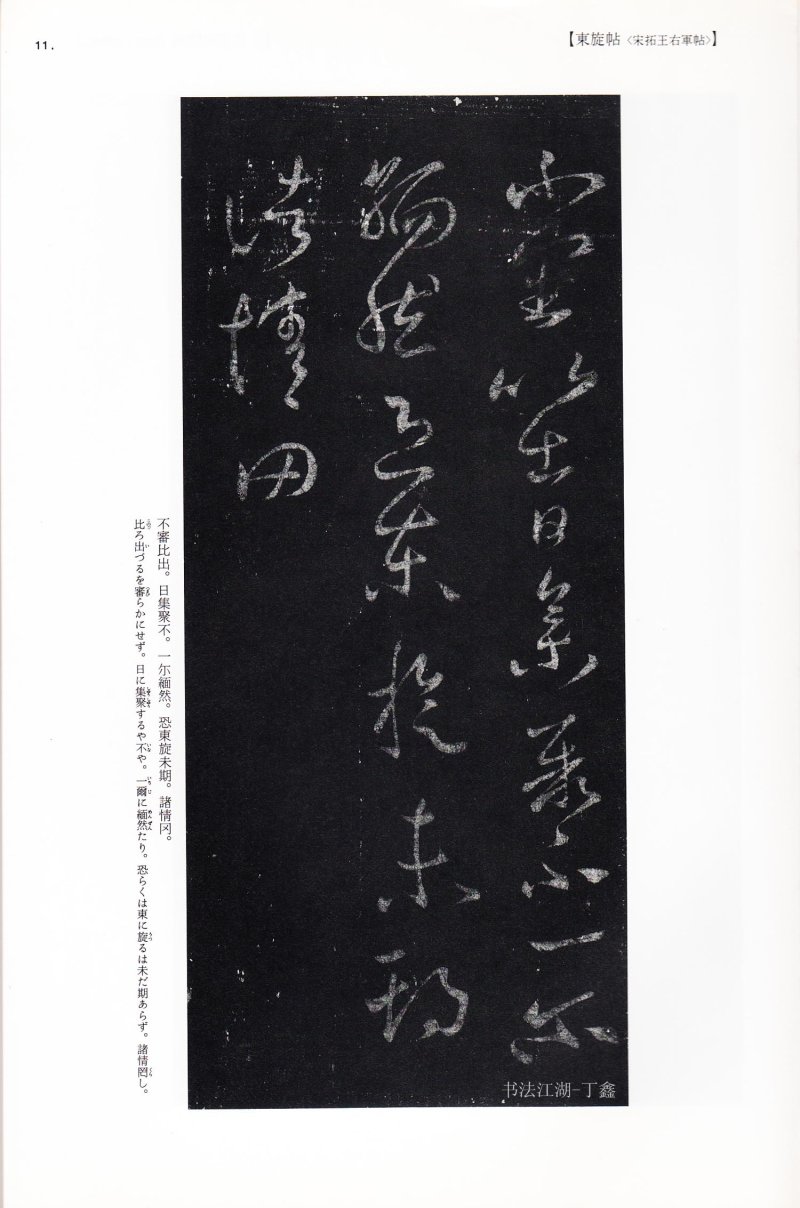 11.
【東旋帖〈宋拓王右軍帖〉】
不審比出日集聚不一尓
緬然恐東旋未期
諸情罔
不審比出。日集聚不。一尓緬然。恐東旋未期。諸情罔。
比ろ出づるを審らかにせず。日に集聚するや不や。一爾に緬然たり。恐らくは東に旋るは未だ期あらず。諸情罔し。
书法江湖-丁鑫